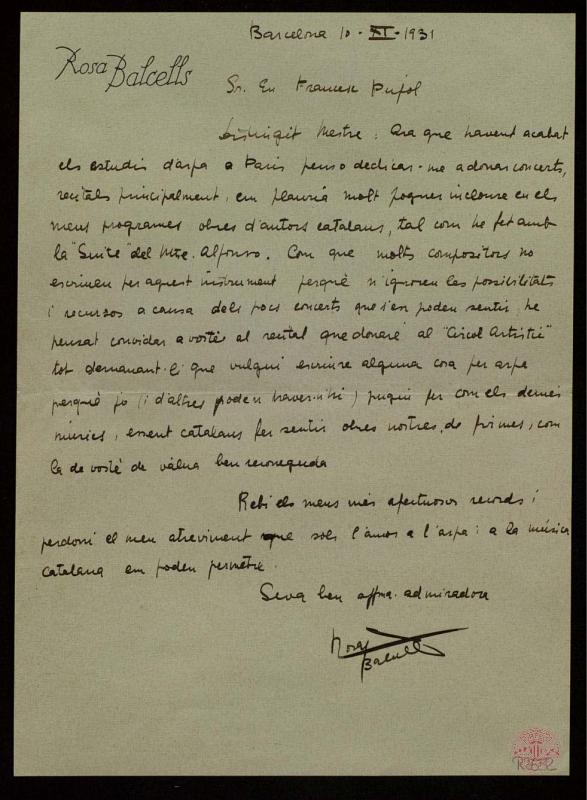 Barcelona 10 - XI - 1931
Rosa Balcells
Sr. En Francesc Pujol
Distingit Mestre: Ara que havent acabat
els estudis d'arpa a Paris penso dedicar-me a donar concerts,
recitals principalment, em plauria molt poguer incloure en els
meus programes obres d'autors catalans, tal com he fet amb
la "Suite" del Mtre. Alfonso. Com que molts compositors no
escriuen per aquest instrument perquè n'ignoren les possibilitats
i recursos a causa dels pocs concerts que s'en poden sentir, he
pensat convidar a vostè al recital que donaré al "Circol Artístic"
tot demanant-li que vulgui escriure alguna cosa per arpa
perquè jo (i d'altres poden haver-n'hi) pugui fer com els demés
músics, essent catalans fer sentir obres nostres, de firmes, com
la de vostè de vàlua ben reconeguda
Rebi els meus més afectuosos records i
perdoni el meu atreviment que sols l'amor a l'arpa i a la música
catalana em poden permetre.
Seva ben affma. admiradora
Rosa
Balcells